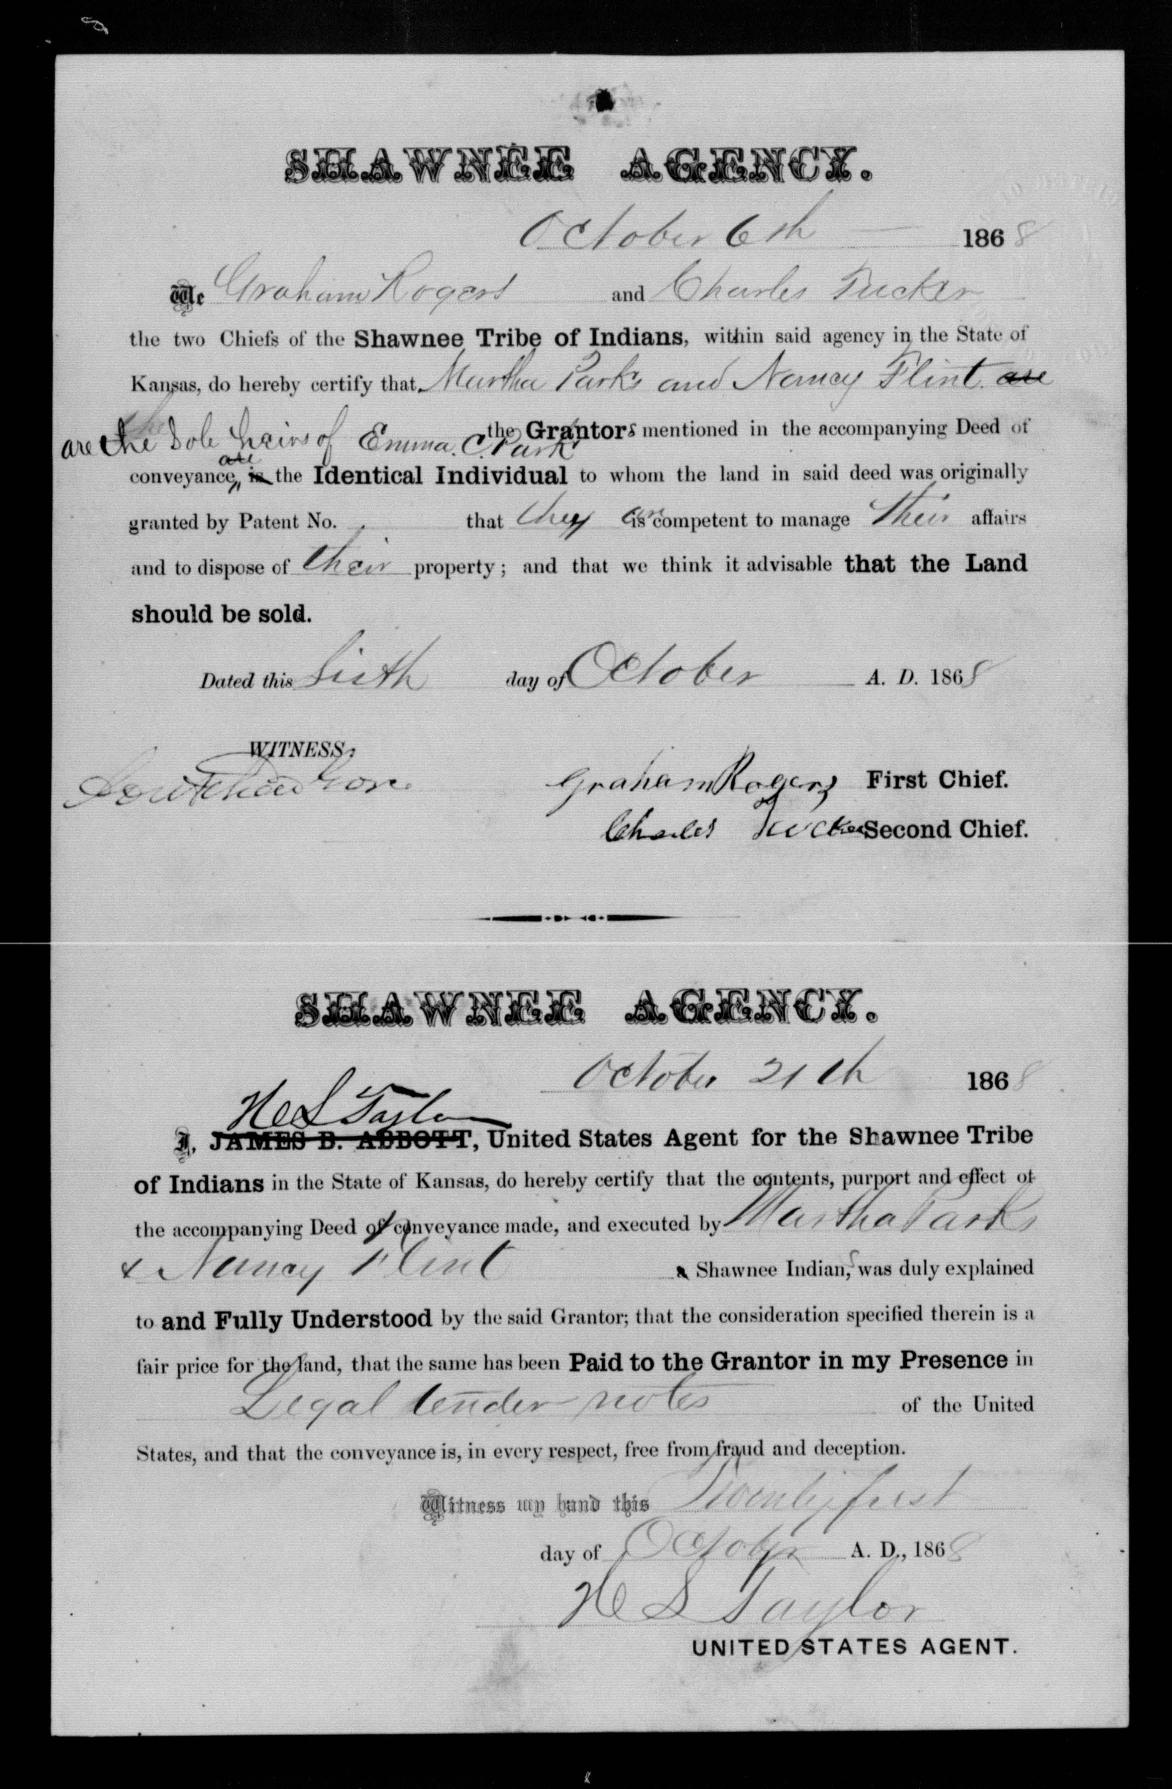 SHAWNEE AGENCY.
October 6th 1868
We Graham Rogers and Charles Tucker
the two Chiefs of the Shawnee Tribe of Indians, within said agency in the State of
Kansas, do hereby certify that Martha Parks and Nancy Flint are
are the Sole heirs of Emma. C. Parks the Grantors mentioned in the accompanying Deed of
conveyance, are is the Identical Individual to whom the land in said deed was originally
granted by Patent No. that they are is competent to manage their affairs
and to dispose of their property; and that we think it advisable that the Land
should be sold.
Dated this Sixth day of October A. D. 1868
WITNESS:
Graham Rogers First Chief.
Charles Tucker Second Chief.
SHAWNEE AGENCY.
October 21th 1868
H L Taylor
I, JAMES B. ABBOTT, United States Agent for the Shawnee Tribe
of Indians in the State of Kansas, do hereby certify that the contents, purport and effect of
the accompanying Deed of conveyance made, and executed by Martha Parks
& Nancy Flint a Shawnee Indians, was duly explained
to and Fully Understood by the said Grantor; that the consideration specified therein is a
fair price for the land, that the same has been Paid to the Grantor in my Presence in
Legal tender notes of the United
States, and that the conveyance is, in every respect, free from fraud and deception.
Witness my hand this Twenty first
day of October A. D., 1868
H L Taylor
UNITED STATES AGENT.